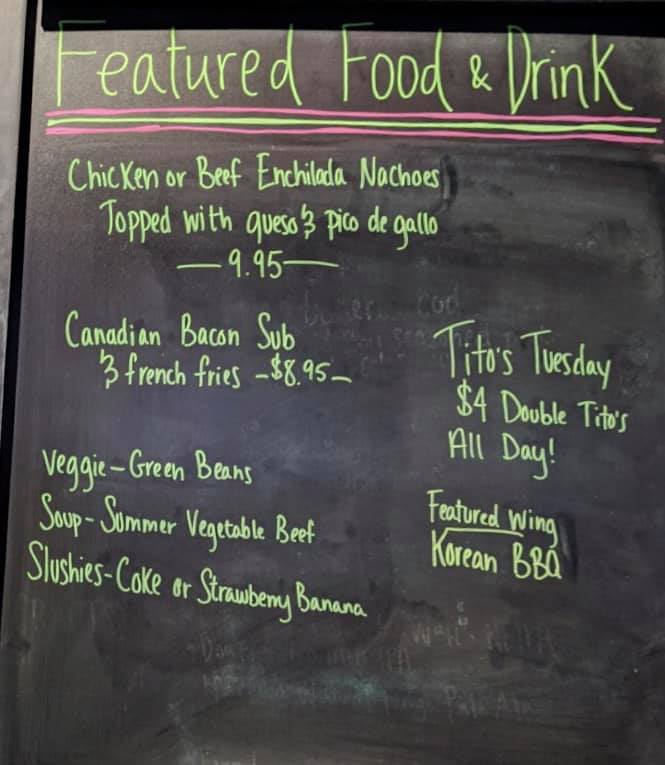 Featured Food & Drink
Chicken or Beef Enchilada Nachoes
Topped with queso & pico de gallo
— 9.95 —
Canadian Bacon Sub
& french fries - $8.95 -
Tito's Tuesday
$4 Double Tito's
All Day!
Veggie - Green Beans
Soup - Summer Vegetable Beef
Slushies - Coke or Strawberry Banana
Featured Wing
Korean BBQ